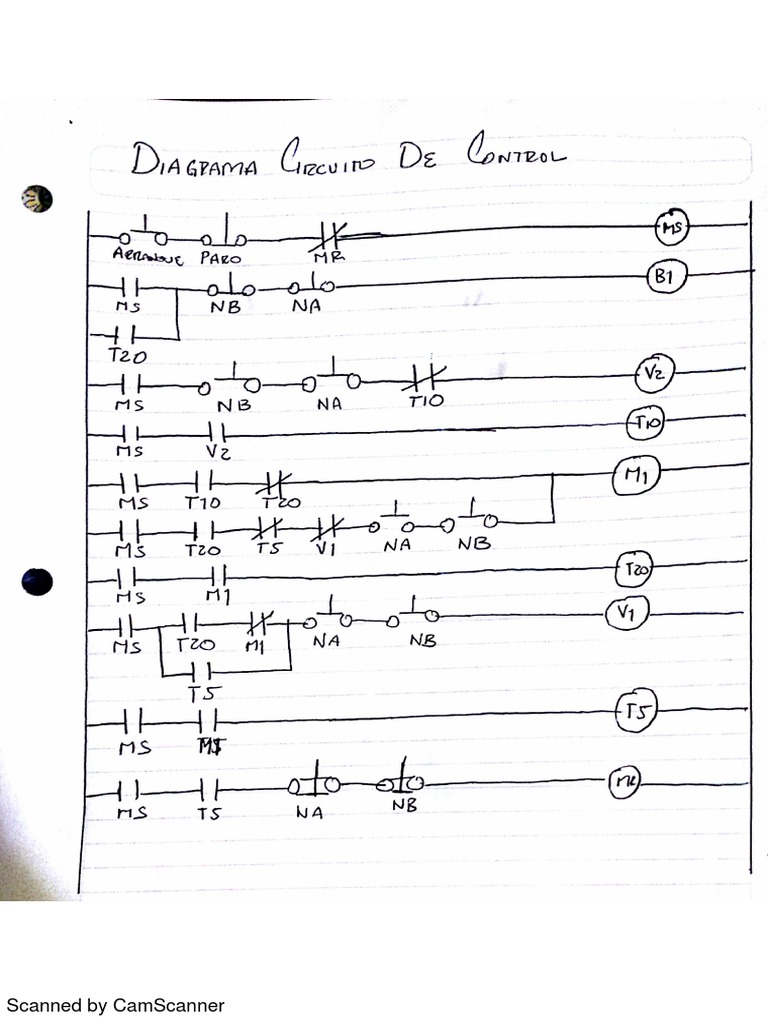 DIAGRAMA CIRCUITO DE CONTROL
MS
ARRANQUE PARO MR
B1
MS NB NA
T20
V2
MS NB NA T10
T10
MS V2
M1
MS T10 T20
MS T20 T5 V1 NA NB
T20
MS M1
V1
MS T20 M1 NA NB
T5
T5
MS
MR
MS T5 NA NB
Scanned by CamScanner